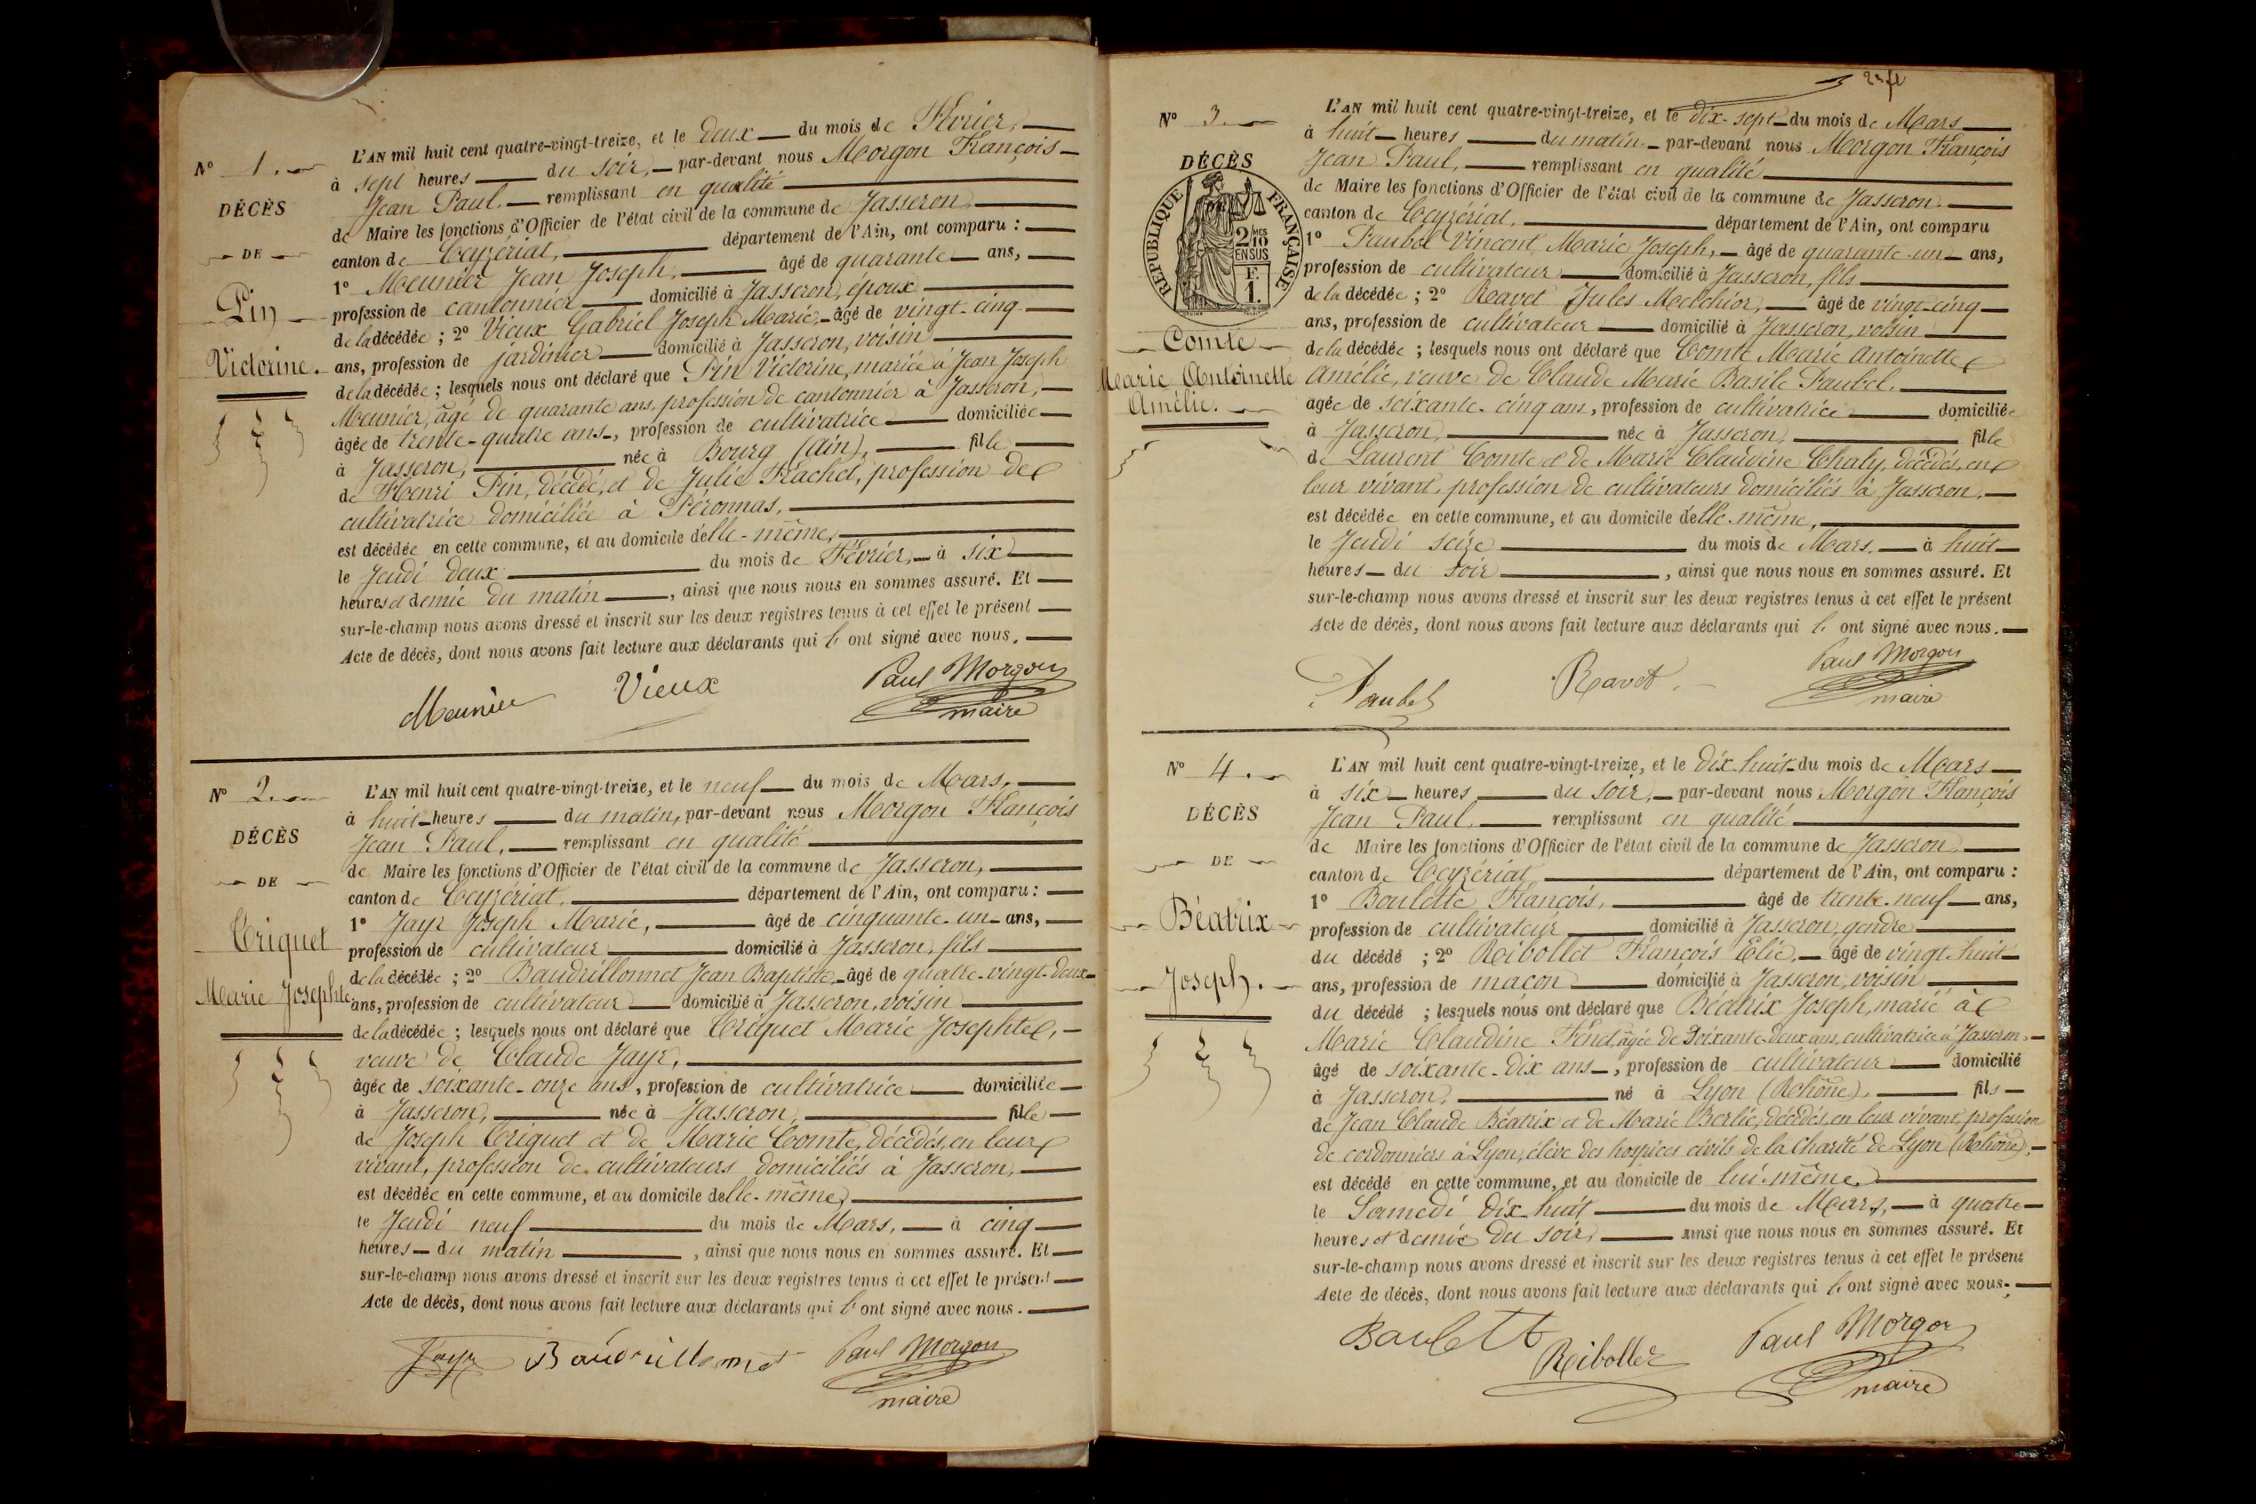 N° 1.
DÉCÈS
DE
Pin
Victorine.
L'AN mil huit cent quatre-vingt-treize, et le deux du mois de Février,
à sept heures du soir, par-devant nous Morgon François
Jean Paul, remplissant en qualité
de Maire les fonctions d'Officier de l'état civil de la commune de Jasseron,
canton de Ceyzériat, département de l'Ain, ont comparu :
1° Meunier Jean Joseph, âgé de quarante ans,
profession de cantonnier domicilié à Jasseron, époux
de la décédée ; 2° Vieux Gabriel Joseph Marie, âgé de vingt-cinq
ans, profession de jardinier domicilié à Jasseron, voisin
de la décédée ; lesquels nous ont déclaré que Pin Victorine, mariée à Jean Joseph
Meunier, âgé de quarante ans, profession de cantonnier à Jasseron,
âgée de trente-quatre ans, profession de cultivatrice domiciliée
à Jasseron, née à Bourg (Ain), fille
de Henri Pin, décédé, et de Julie Frachet, profession de
cultivatrice domiciliée à Péronnas,
est décédée en cette commune, et au domicile d'elle-même,
le Jeudi deux du mois de Février, à six
heures et demie du matin, ainsi que nous nous en sommes assuré. Et
sur-le-champ nous avons dressé et inscrit sur les deux registres tenus à cet effet le présent
Acte de décès, dont nous avons fait lecture aux déclarants qui l'ont signé avec nous.
Meunier Vieux Paul Morgon
maire
N° 2.
DÉCÈS
DE
Triquet
Marie Josephte
L'AN mil huit cent quatre-vingt-treize, et le neuf du mois de Mars,
à huit heures du matin, par-devant nous Morgon François
Jean Paul, remplissant en qualité
de Maire les fonctions d'Officier de l'état civil de la commune de Jasseron,
canton de Ceyzériat, département de l'Ain, ont comparu :
1° Jayr Joseph Marie, âgé de cinquante-un ans,
profession de cultivateur domicilié à Jasseron, fils
de la décédée ; 2° Baudrillonnet Jean Baptiste, âgé de quatre-vingt-deux
ans, profession de cultivateur domicilié à Jasseron, voisin
de la décédée ; lesquels nous ont déclaré que Triquet Marie Josephte,
veuve de Claude Jayr,
âgée de soixante-onze ans, profession de cultivatrice domiciliée
à Jasseron, née à Jasseron, fille
de Joseph Triquet et de Marie Comte, décédés, en leur
vivant, profession de cultivateurs domiciliés à Jasseron,
est décédée en cette commune, et au domicile d'elle-même,
le Jeudi neuf du mois de Mars, à cinq
heures du matin, ainsi que nous nous en sommes assuré. Et
sur-le-champ nous avons dressé et inscrit sur les deux registres tenus à cet effet le présent
Acte de décès, dont nous avons fait lecture aux déclarants qui l'ont signé avec nous.
Jayr Baudrillonnet Paul Morgon
maire
N° 3.
DÉCÈS
REPUBLIQUE FRANÇAISE
2/10 EN SUS
F.
1.
Comte
Marie Antoinette
Amélie.
L'AN mil huit cent quatre-vingt-treize, et le dix-sept du mois de Mars
à huit heures du matin, par-devant nous Morgon François
Jean Paul, remplissant en qualité
de Maire les fonctions d'Officier de l'état civil de la commune de Jasseron.
canton de Ceyzériat, département de l'Ain, ont comparu
1° Paubel Vincent Marie Joseph, âgé de quarante-un ans,
profession de cultivateur domicilié à Jasseron, fils
de la décédée ; 2° Ravet Jules Melchior, âgé de vingt-cinq
ans, profession de cultivateur domicilié à Jasseron, voisin
de la décédée ; lesquels nous ont déclaré que Comte Marie Antoinette
Amélie, veuve de Claude Marie Basile Paubel,
agée de soixante-cinq ans, profession de cultivatrice domiciliée
à Jasseron, née à Jasseron, fille
de Laurent Comte et de Marie Claudine Chaly, décédés, en
leur vivant, profession de cultivateurs domiciliés à Jasseron,
est décédée en cette commune, et au domicile d'elle-même,
le Jeudi seize du mois de Mars, à huit
heures du soir, ainsi que nous nous en sommes assuré. Et
sur-le-champ nous avons dressé et inscrit sur les deux registres tenus à cet effet le présent
Acte de décès, dont nous avons fait lecture aux déclarants qui l'ont signé avec nous.
Paubel Ravet Paul Morgon
maire
N° 4.
DÉCÈS
DE
Béatrix
Joseph.
L'AN mil huit cent quatre-vingt-treize, et le dix-huit du mois de Mars
à six heures du soir, par-devant nous Morgon François
Jean Paul, remplissant en qualité
de Maire les fonctions d'Officier de l'état civil de la commune de Jasseron,
canton de Ceyzériat, département de l'Ain, ont comparu :
1° Boulette François, âgé de trente-neuf ans,
profession de cultivateur domicilié à Jasseron, gendre
du décédé ; 2° Reibollet François Elie, âgé de vingt-huit
ans, profession de maçon domicilié à Jasseron, voisin
du décédé ; lesquels nous ont déclaré que Béatrix Joseph, marié à
Marie Claudine Fenet, âgée de Soixante-deux ans, cultivatrice à Jasseron,
âgé de soixante-dix ans, profession de cultivateur domicilié
à Jasseron, né à Lyon (Rhône), fils
de Jean Claude Béatrix et de Marie Berlie, décédés, en leur vivant, profession
de cordonniers à Lyon, élève des hospices civils de la Charité de Lyon (Rhône),
est décédé en cette commune, et au domicile de lui-même,
le Samedi dix-huit du mois de Mars, à quatre
heures et demie du soir, ainsi que nous nous en sommes assuré. Et
sur-le-champ nous avons dressé et inscrit sur les deux registres tenus à cet effet le présent
Acte de décès, dont nous avons fait lecture aux déclarants qui l'ont signé avec nous.
Boulett Reibollet Paul Morgon
maire